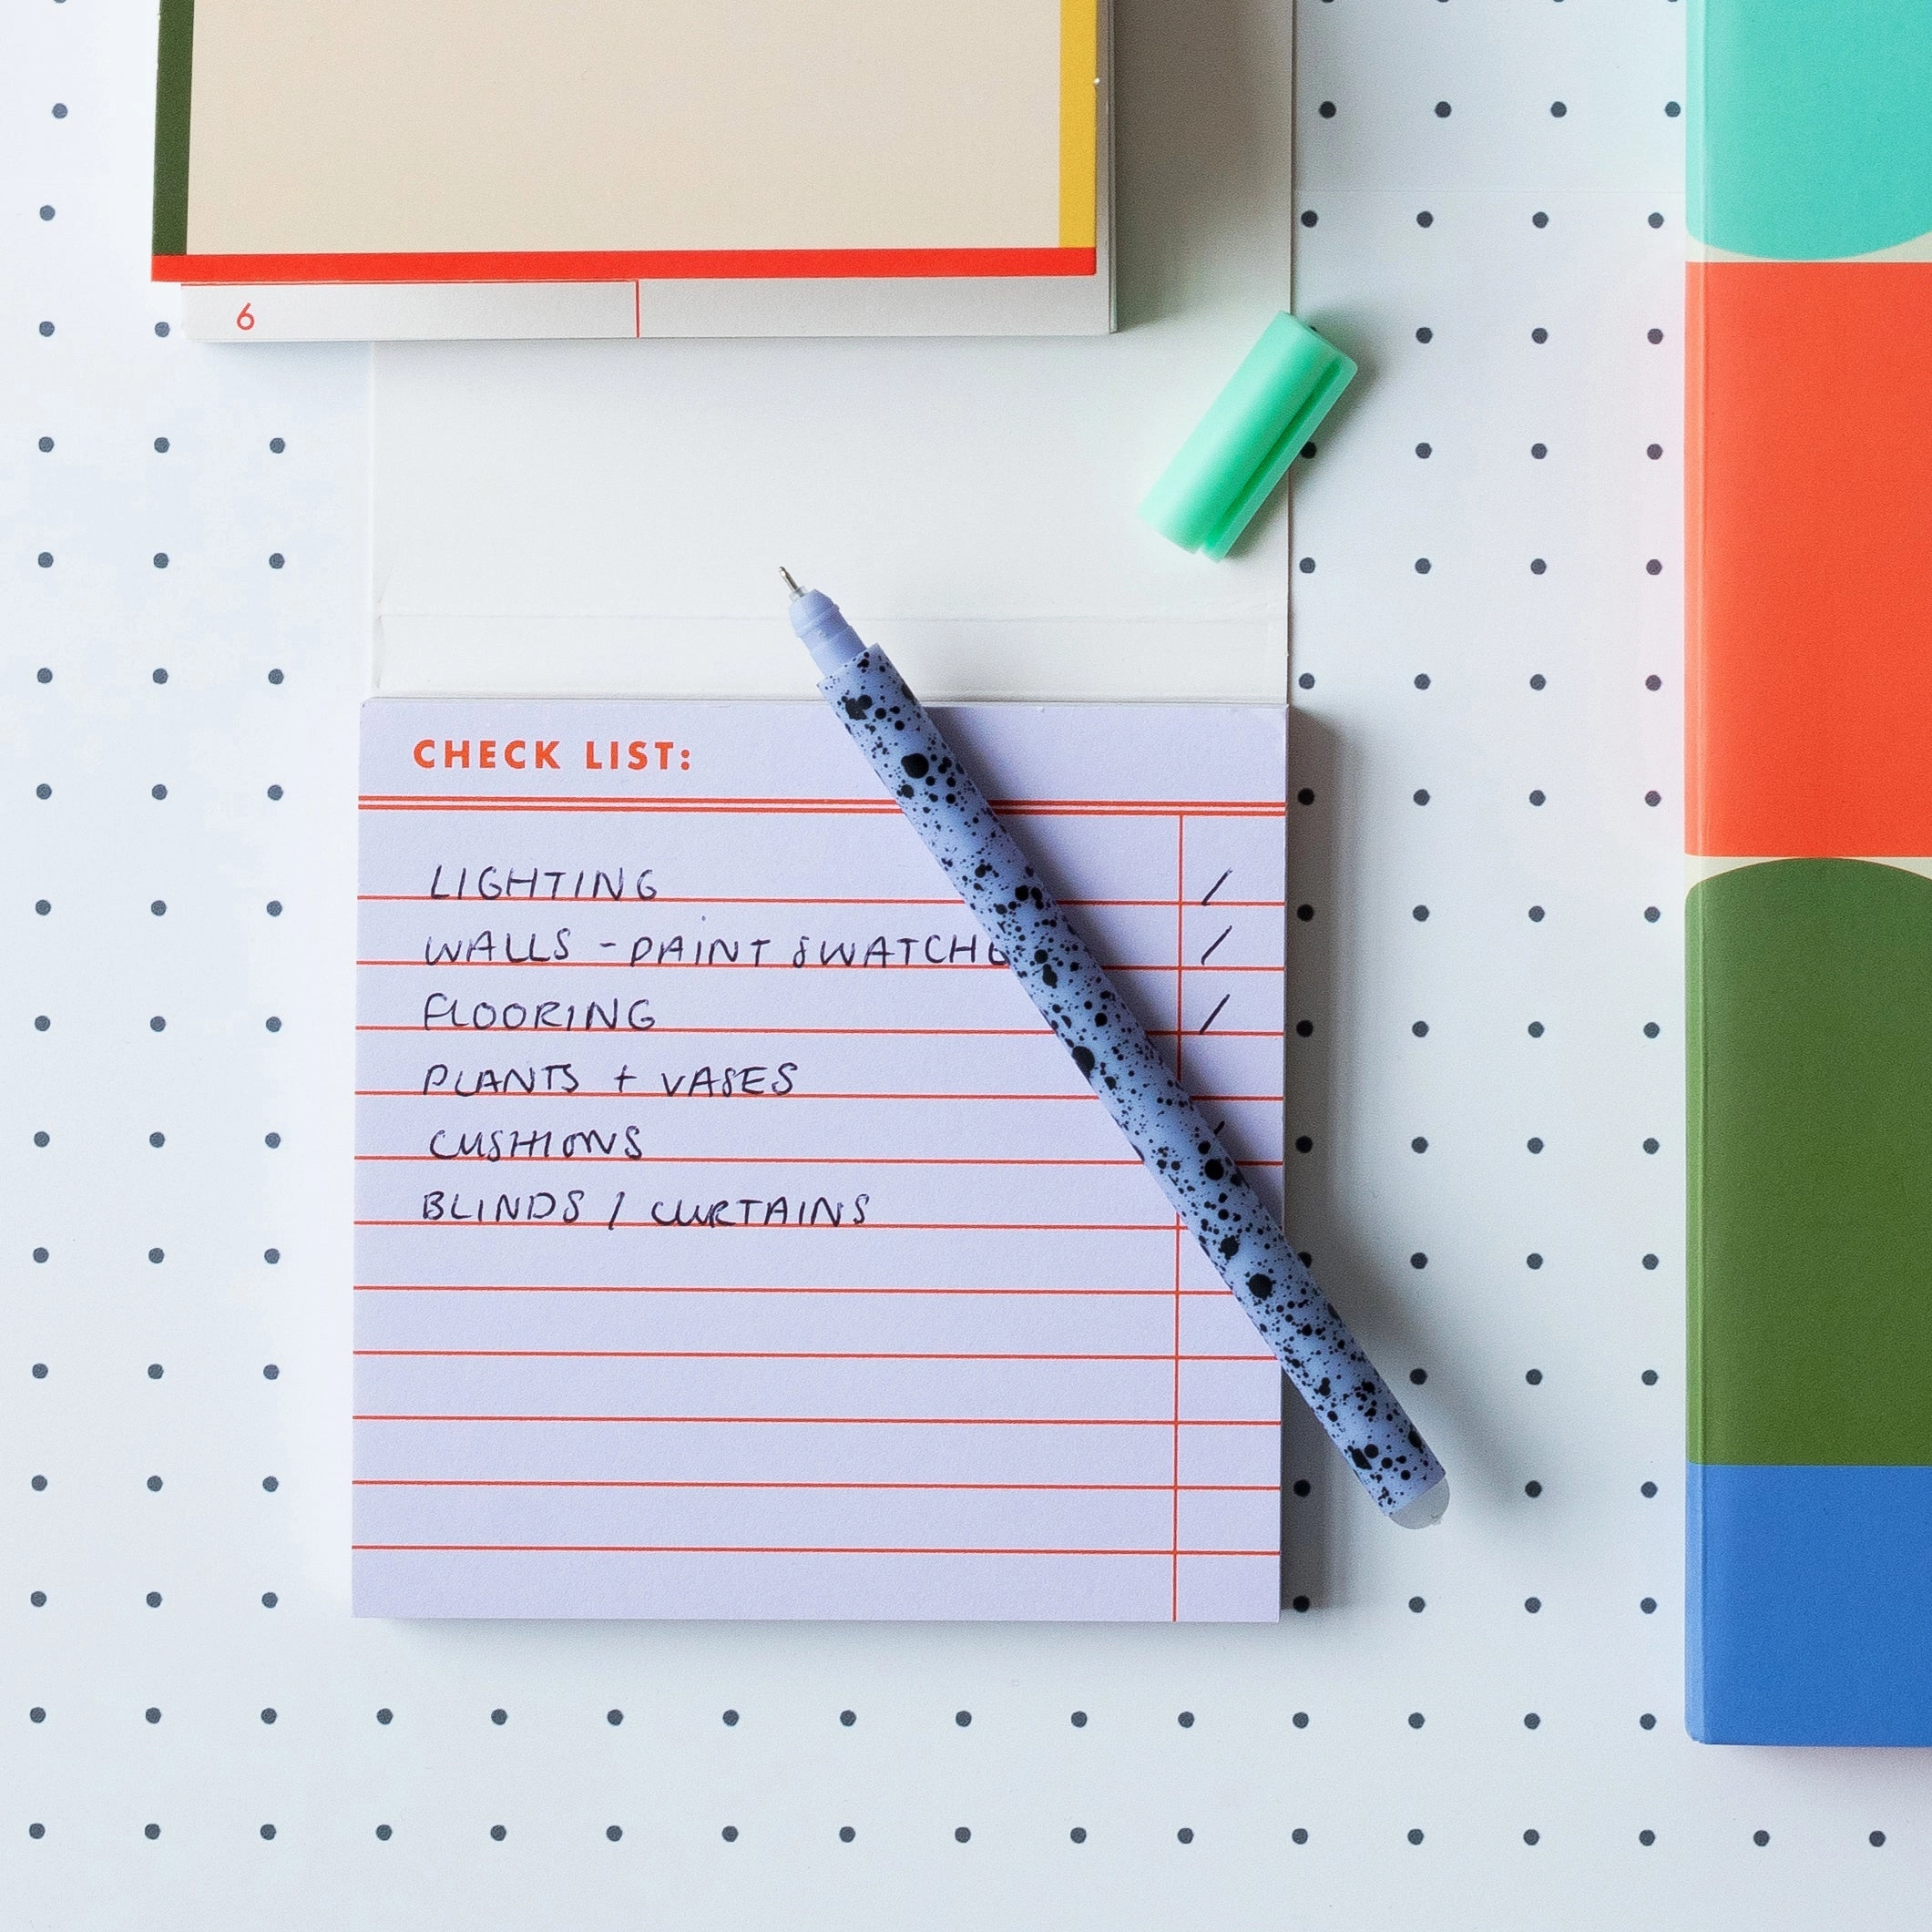 6
CHECK LIST:
LIGHTING /
WALLS - PAINT SWATCHE /
FLOORING /
PLANTS + VASES
CUSHIONS
BLINDS / CURTAINS